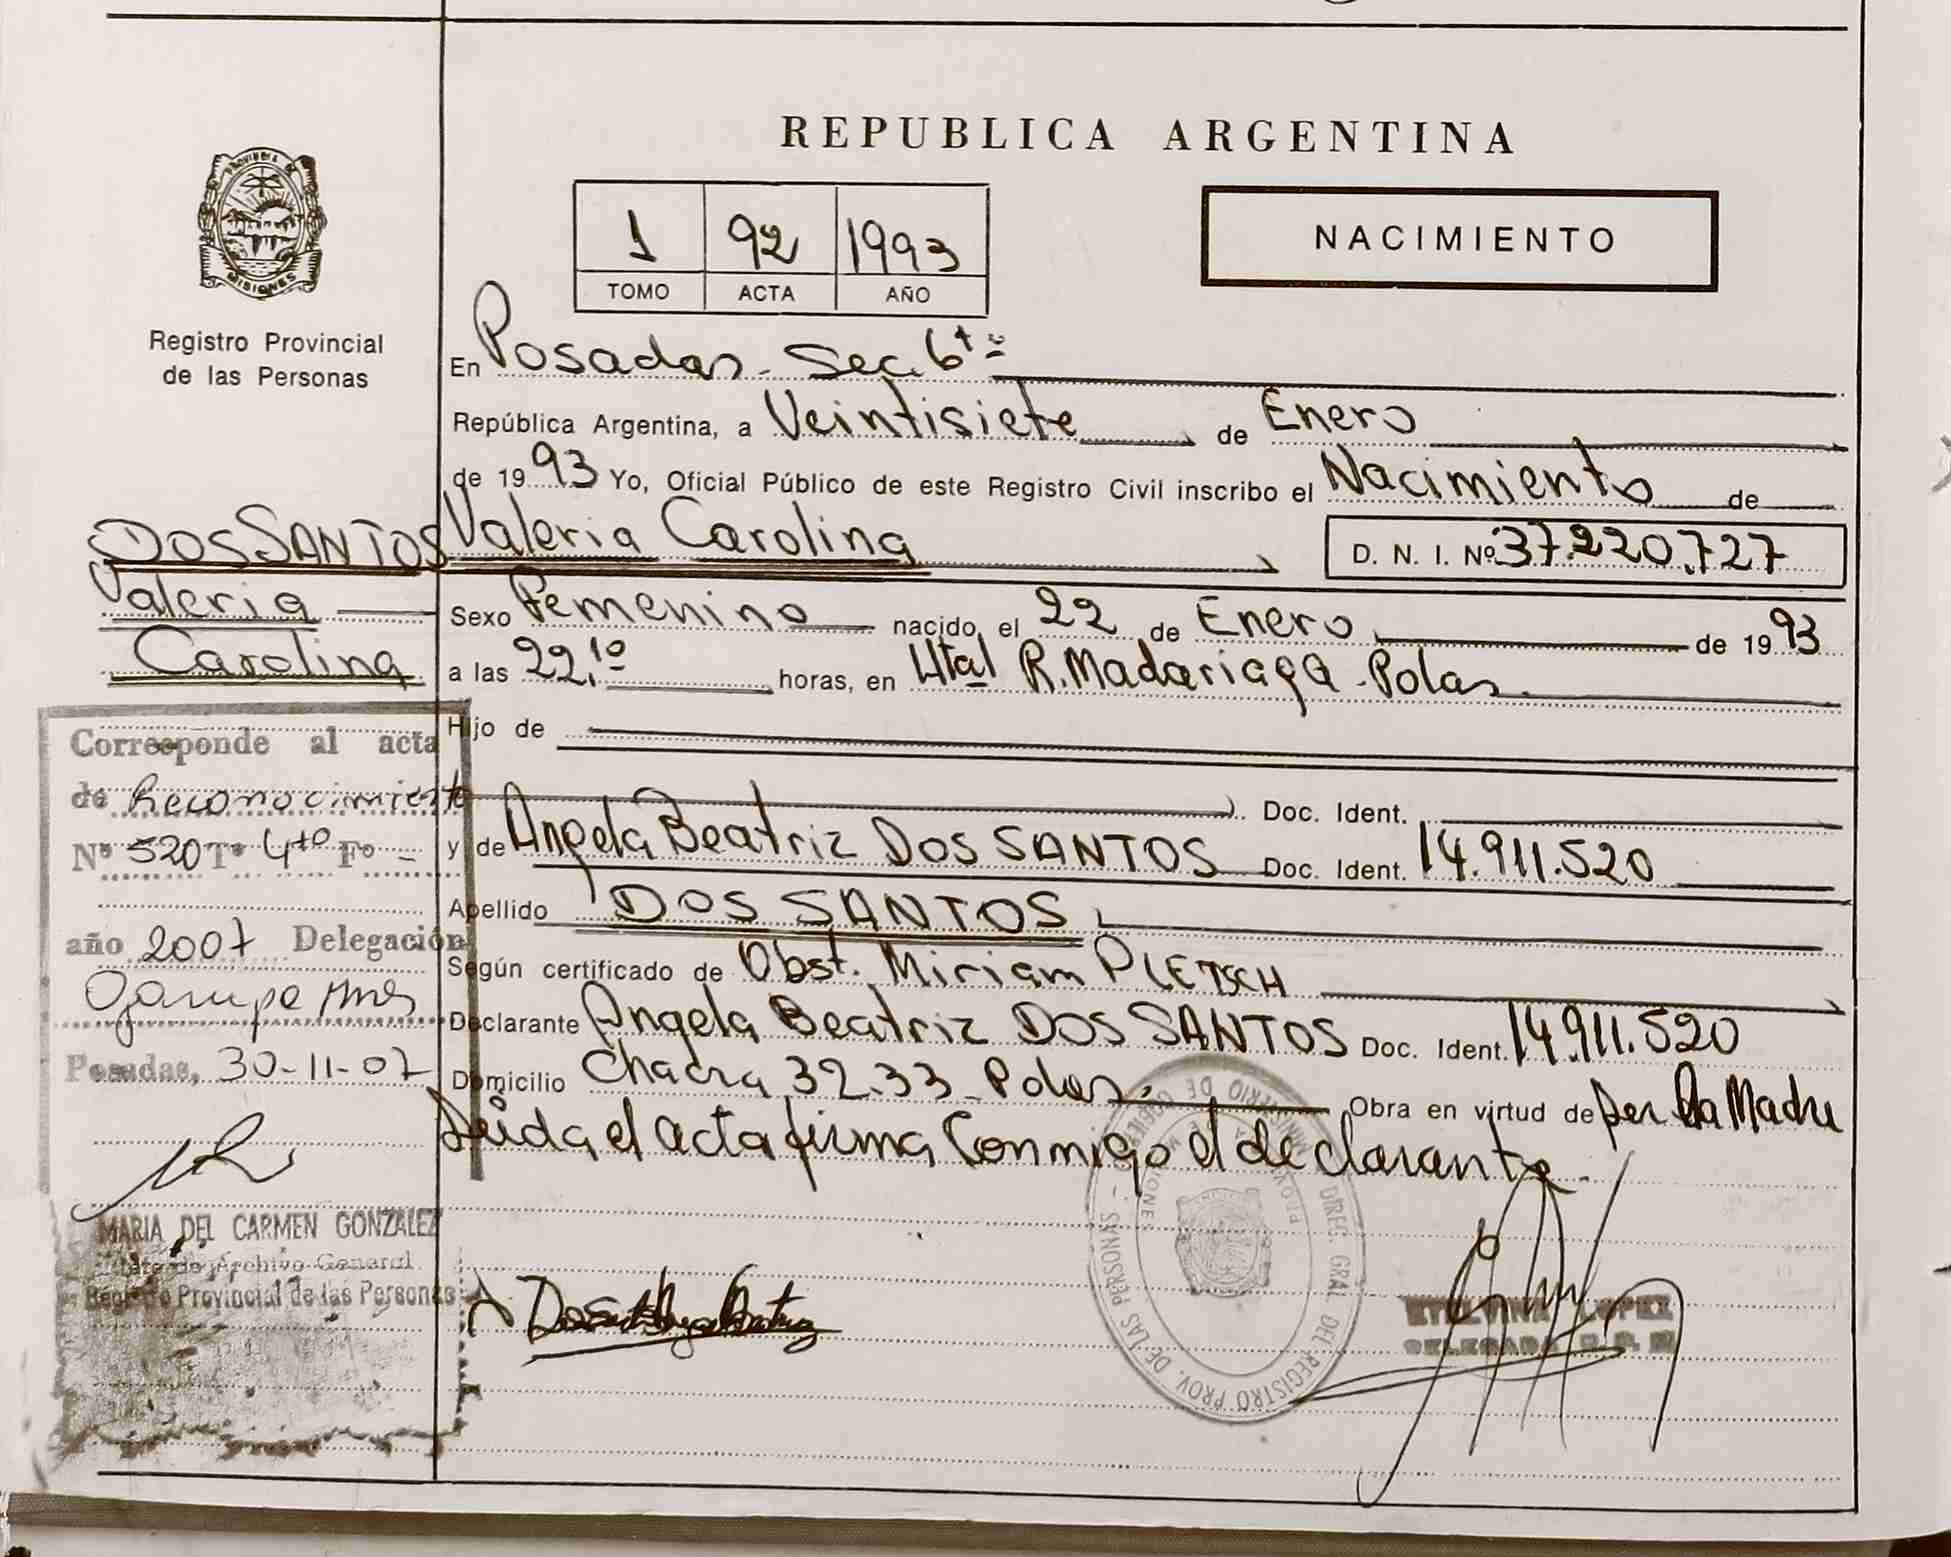 REPUBLICA ARGENTINA
PROVINCIA DE
MISIONES
Registro Provincial
de las Personas
1 92 1993
TOMO ACTA AÑO
NACIMIENTO
En Posadas - Sec. 6ta
República Argentina, a Veintisiete de Enero
de 1993 Yo, Oficial Público de este Registro Civil inscribo el Nacimiento de
DOS SANTOS Valeria Carolina D. N. I. Nº 37.220.727
Valeria
Carolina
Sexo Femenino nacido el 22 de Enero de 1993
a las 22,10 horas, en Htal R. Madariaga - Pdas.
Hijo de
Doc. Ident.
y de Angela Beatriz DOS SANTOS Doc. Ident. 14.911.520
Apellido DOS SANTOS
Según certificado de Obst. Miriam PLETSCH
Declarante Angela Beatriz DOS SANTOS Doc. Ident. 14.911.520
Domicilio Chacra 32-33 - Pdas. Obra en virtud de ser la Madre
Leida el acta firma Conmigo el declarante.
Corresponde al acta
de Reconocimiento
Nº 520 Tº 4to Fº -
año 2007 Delegación
Posadas, 30-11-07
MARIA DEL CARMEN GONZALEZ
Archivo General
Registro Provincial de las Personas
DIREC. GRAL. DEL REGISTRO PROV. DE LAS PERSONAS - MINISTERIO DE GOBIERNO
ETELVINA LOPEZ
DELEGADA R. P. P.